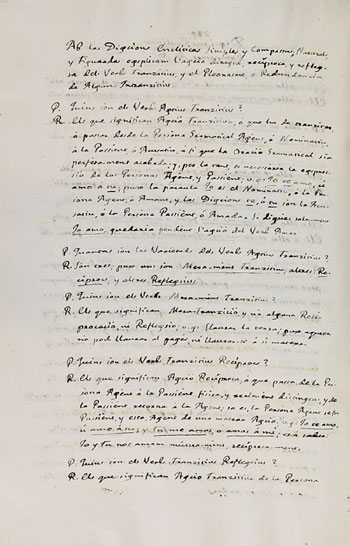 Ab las Diccions Encliticas simples y Compostas, Natural
y Figurada explican l'acció directa, reciproca y reflexi
va del Verb Tranzitiu, y el Pleonasme, o Redundancia
de Alguns Intranzitius.
P. Quins son els Verbs Activs Tranzitius?
R. Els que significan Acció Tranzitiva, ò que ha de tranzitar
ò passar desde la Persona Grammatical Agent, ò Nominativ,
à la Passiènt ò Acusativ, à fi que la Oració Grammatical sia
perfetament acabada; y, per lo tant es necessaria la expres-
sio de las Personas Agent, y Passiènt v. g. Jo te amo, ò
amo à tu; puix la paraula Jo es el Nominativ, ò la Per-
sona Agent, ò Amant, y las Diccions te, ò tu son lo Acu-
satiu, ò la Persona Passiènt, ò Amada. Si digues solament
Jo amo, quedaria pendent l'acció del Verb Amar.
P. Quantas son las Varietats dels Verbs Activs Tranzitius?
R. Son tres, puix uns son Merament Tranzitius, altres Re-
ciprocs, y altres Reflexius.
P. Quins son els Verbs Merament Tranzitius?
R. Els que significan Mera Tranzició y no alguna Reci-
procació, ni Reflexio; v. g. llansar la
no pod llansar al ni llansarse à si mateixa.
P. Quins son els Verbs Tranzitius Reciprocs?
R. Els que significan Acció Reciproca, ò que passa de la Per-
sona Agent à la Passiènt fisica, y realment distincta, y de
la Passiènt retorna a la Agent; so es, la Persona Agent se fa
Passiènt, y esta Agent de una mateixa Acció, v. g. Jo te amo,
ò amo à tu; y tu me amas, ò amas à mi; so es
Jo y Tu nos amam mutuament, reciprocament.
P. Quins son els Verbs Tranzitius Reflexius?
R. Els que significan Acció Tranzitiva de la Persona